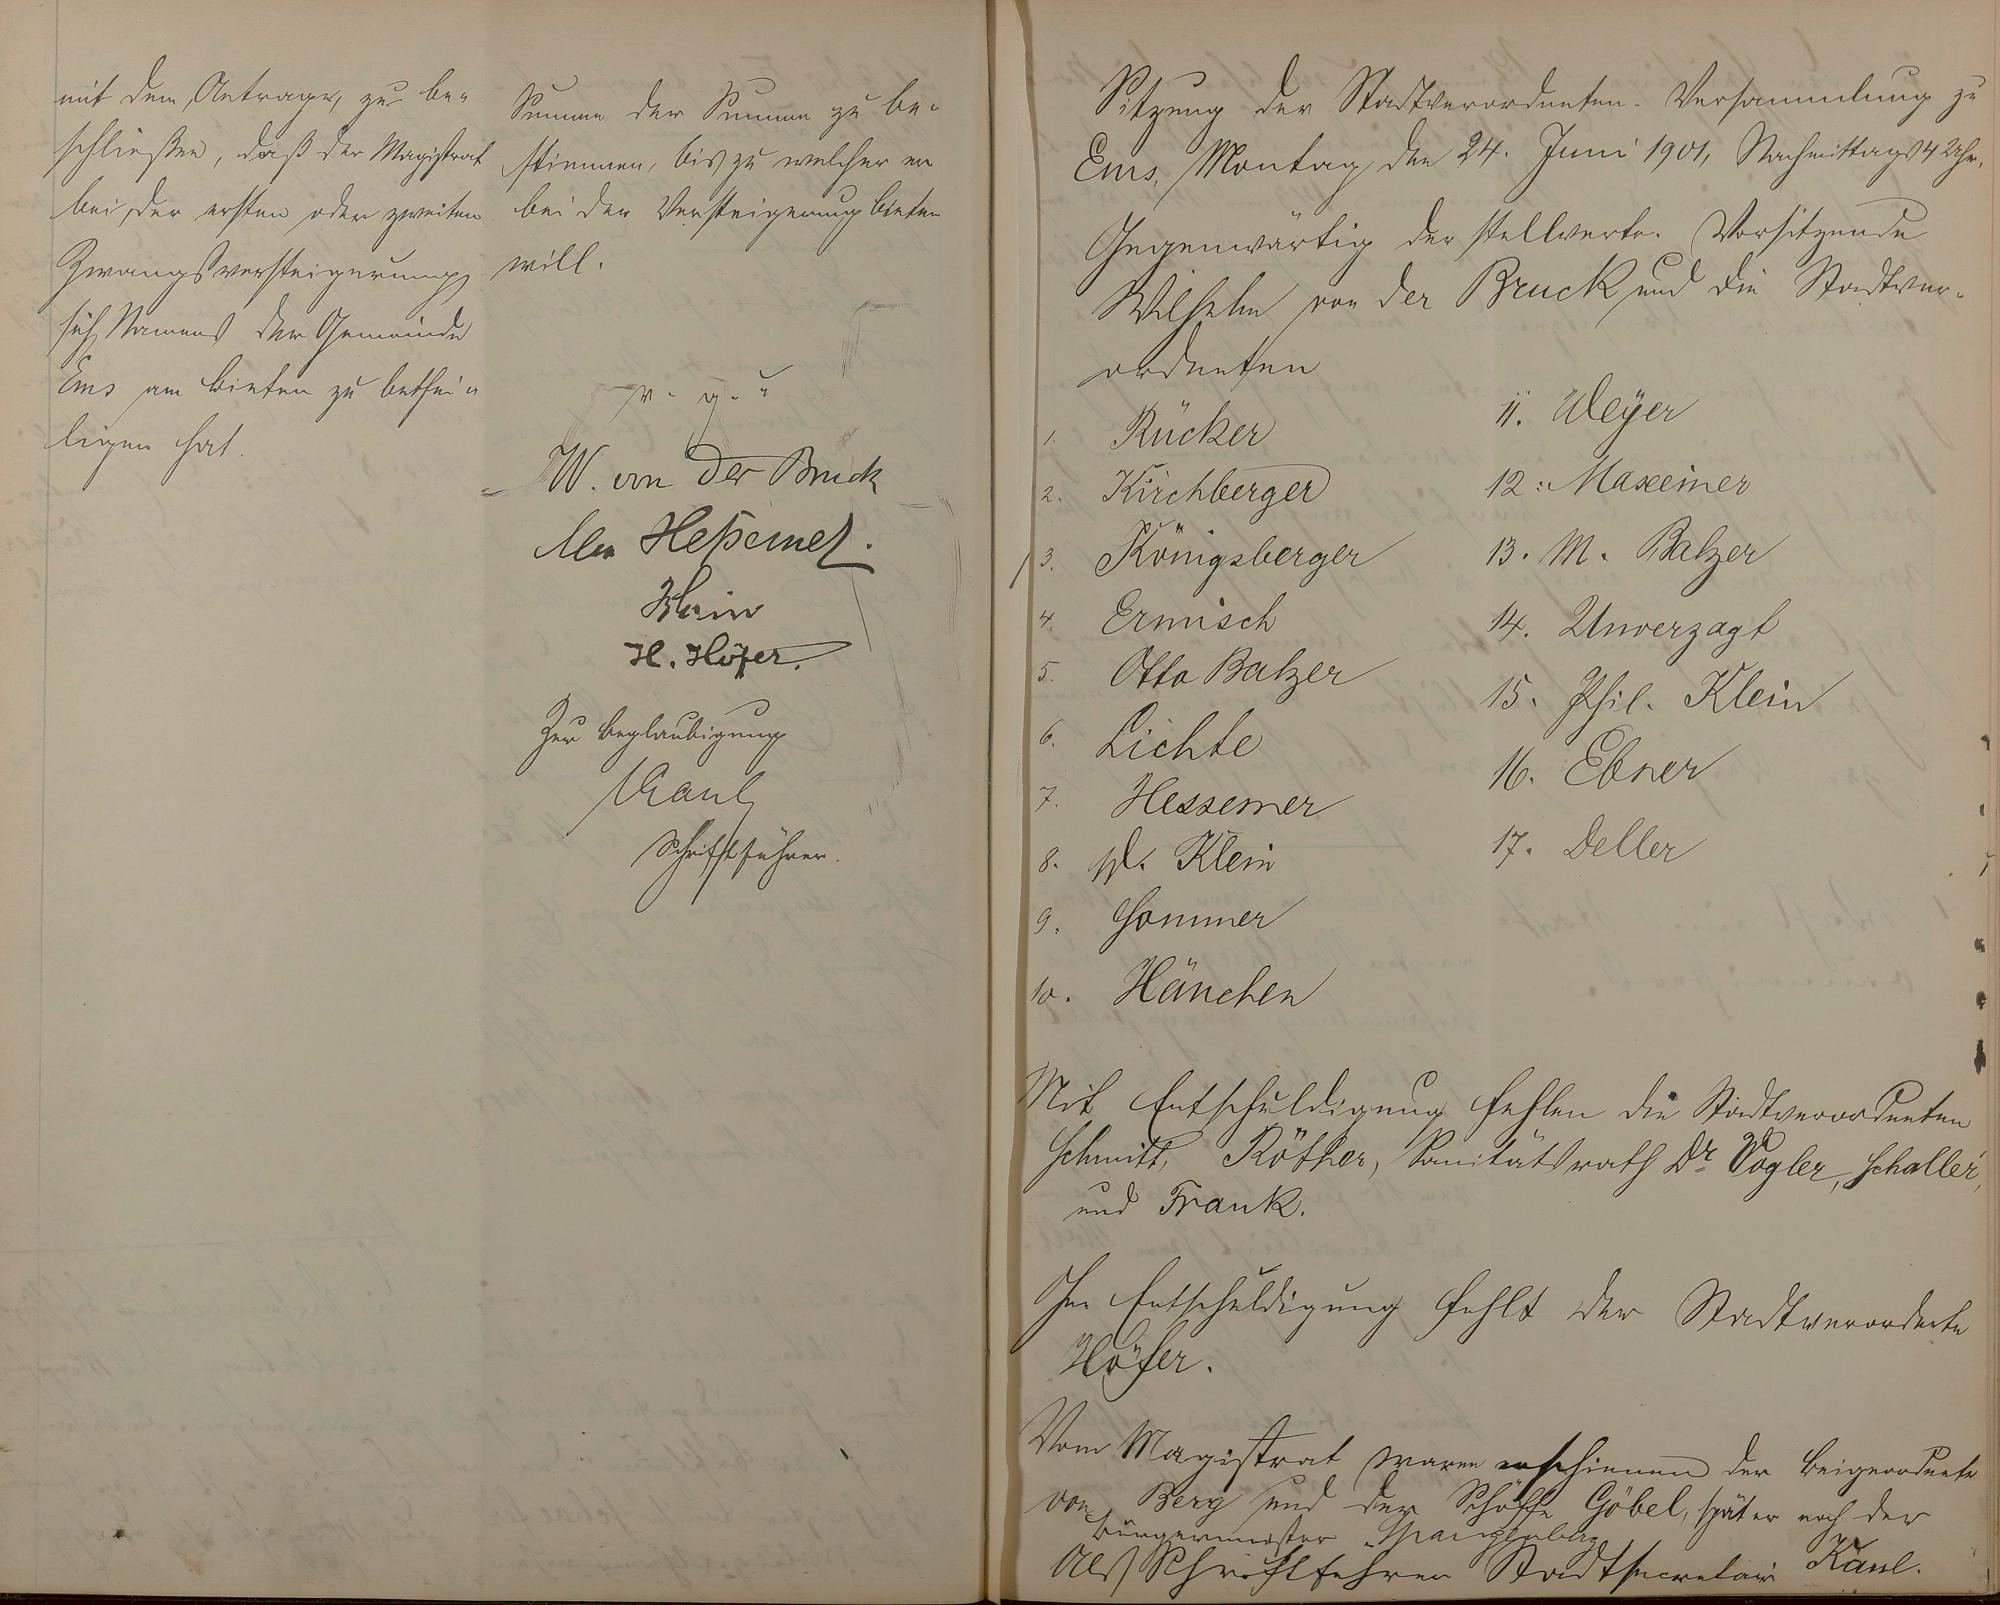 mit dem Antrage, zu be-
schließen, daß der Magistrat
bei der ersten oder zweiten
Zwangsversteigerung
sich Namens der Gemeinde
Ems am Bieten zu bethei-
ligen hat.
Summe der Summe zu be-
stimmen, bis zu welcher er
bei der Versteigerung bieten
will.
v. g. u
W. von der Bruck
Heßemer.
Klein
H. Höfer.
Zur Beglaubigung
Kaul
Schriftführer.
Sitzung der Stadtverordneten-Versammlung zu
Ems, Montag den 24. Juni 1901, Nachmittags 4 Uhr.
Gegenwärtig der stellvertr. Vorsitzende
Wilhelm von der Bruck und die Stadtver-
ordneten
1. Rücker
2. Kirchberger
3. Königsberger
4. Ermisch
5. Otto Balzer
6. Lichte
7. Hessemer
8. W. Klein
9. Sommer
10. Hänchen
11. Weyer
12. Maxeiner
13. M. Balzer
14. Unverzagt
15. Phil. Klein
16. Ebner
17. Deller
Mit Entschuldigung fehlen die Stadtverordneten
Schmitt, Röther, Sanitätsrath Dr Vogler, Schaller,
und Frank.
Ohne Entschuldigung fehlt der Stadtverordnete
Höfer.
Vom Magistrat waren erschienen der Beigeordnete
von Berg und der Schöffe Göbel, später noch der
Bürgermeister Spangenberg
Als Schriftführer Stadtsecretair Kaul.